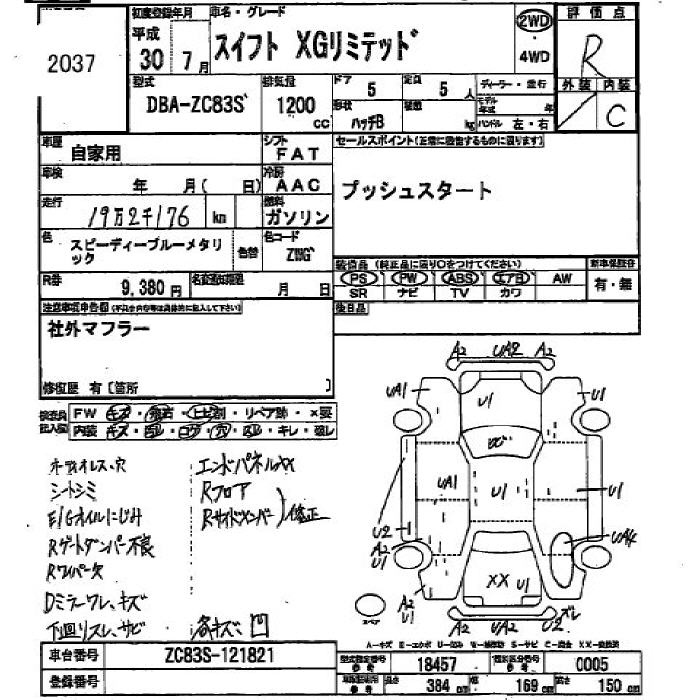 2037
初度登録年月
平成
30 7月
車名・グレード
スイフト XGリミテッド
2WD
4WD
評価点
R
外装 内装
C
型式
DBA-ZC83S
排気量
1200 cc
ドア 5
定員 5 人
形状 ハッチB
kg
ディーラー・並行
モデル年式 年
ハンドル 左・右
車歴 自家用
シフト FAT
セールスポイント(正常に機能するものに限ります)
プッシュスタート
車検 年 月( 日)
冷房 AAC
走行 19万2千176 km
燃料 ガソリン
色 スピーディーブルーメタリック
色替
色コード ZWG
装備品 (純正品に限り○をつけてください)
新車保証書
PS PW ABS エアB AW
SR ナビ TV カワ
有・無
R券 9,380円
名変期限 月 日
後日品
注意事項申告欄
社外マフラー
修復歴 有 〔箇所 〕
検査員記入欄
FW キズ・飛石・ヒビ割・リペア跡・×要
内装 キズ・コゲ・穴・スレ・キレ・
シートシミ
E/Gオイルにじみ
Rゲートダンパー不良
Rワイパー欠
Dミラーワレ、キズ
下廻リスレ、サビ
各キズ、凹
エンドパネルXX
Rフロア
Rサイドメンバー 修正
A2 UA2 A2
UA1 U1 U1
UA1 U1 U1
U2
A2
U1
UA4
XX U1
A2
U1
A2 UA1 U2 ズレ
スペア
A-キズ E-エクボ U-凹み W-補修跡 S-サビ C-腐食 XX-交換済
車台番号 ZC83S-121821
登録番号
型式指定番号 18457
類別区分番号 0005
384 cm 幅 169 cm 高さ 150 cm